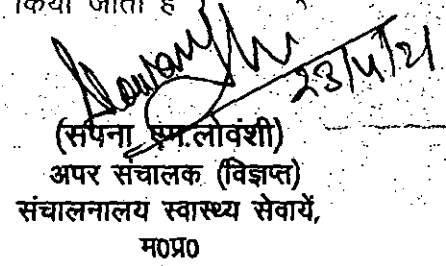 किया जाता है
23/4/21
(सपना एम.लोवंशी)
अपर संचालक (विज्ञप्त)
संचालनालय स्वास्थ्य सेवायें,
म0प्र0